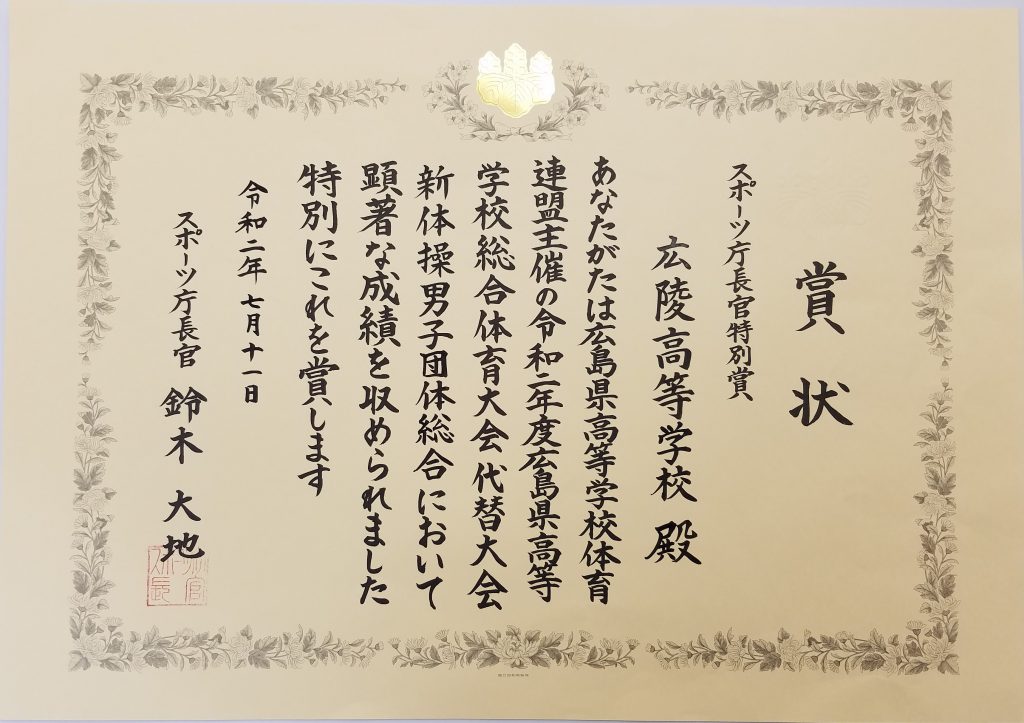 賞状
スポーツ庁長官特別賞
広陵高等学校殿
あなたがたは広島県高等学校体育
連盟主催の令和二年度広島県高等
学校総合体育大会代替大会
新体操男子団体総合において
顕著な成績を収められました
特別にこれを賞します
令和二年七月十一日
スポーツ庁長官 鈴木大地